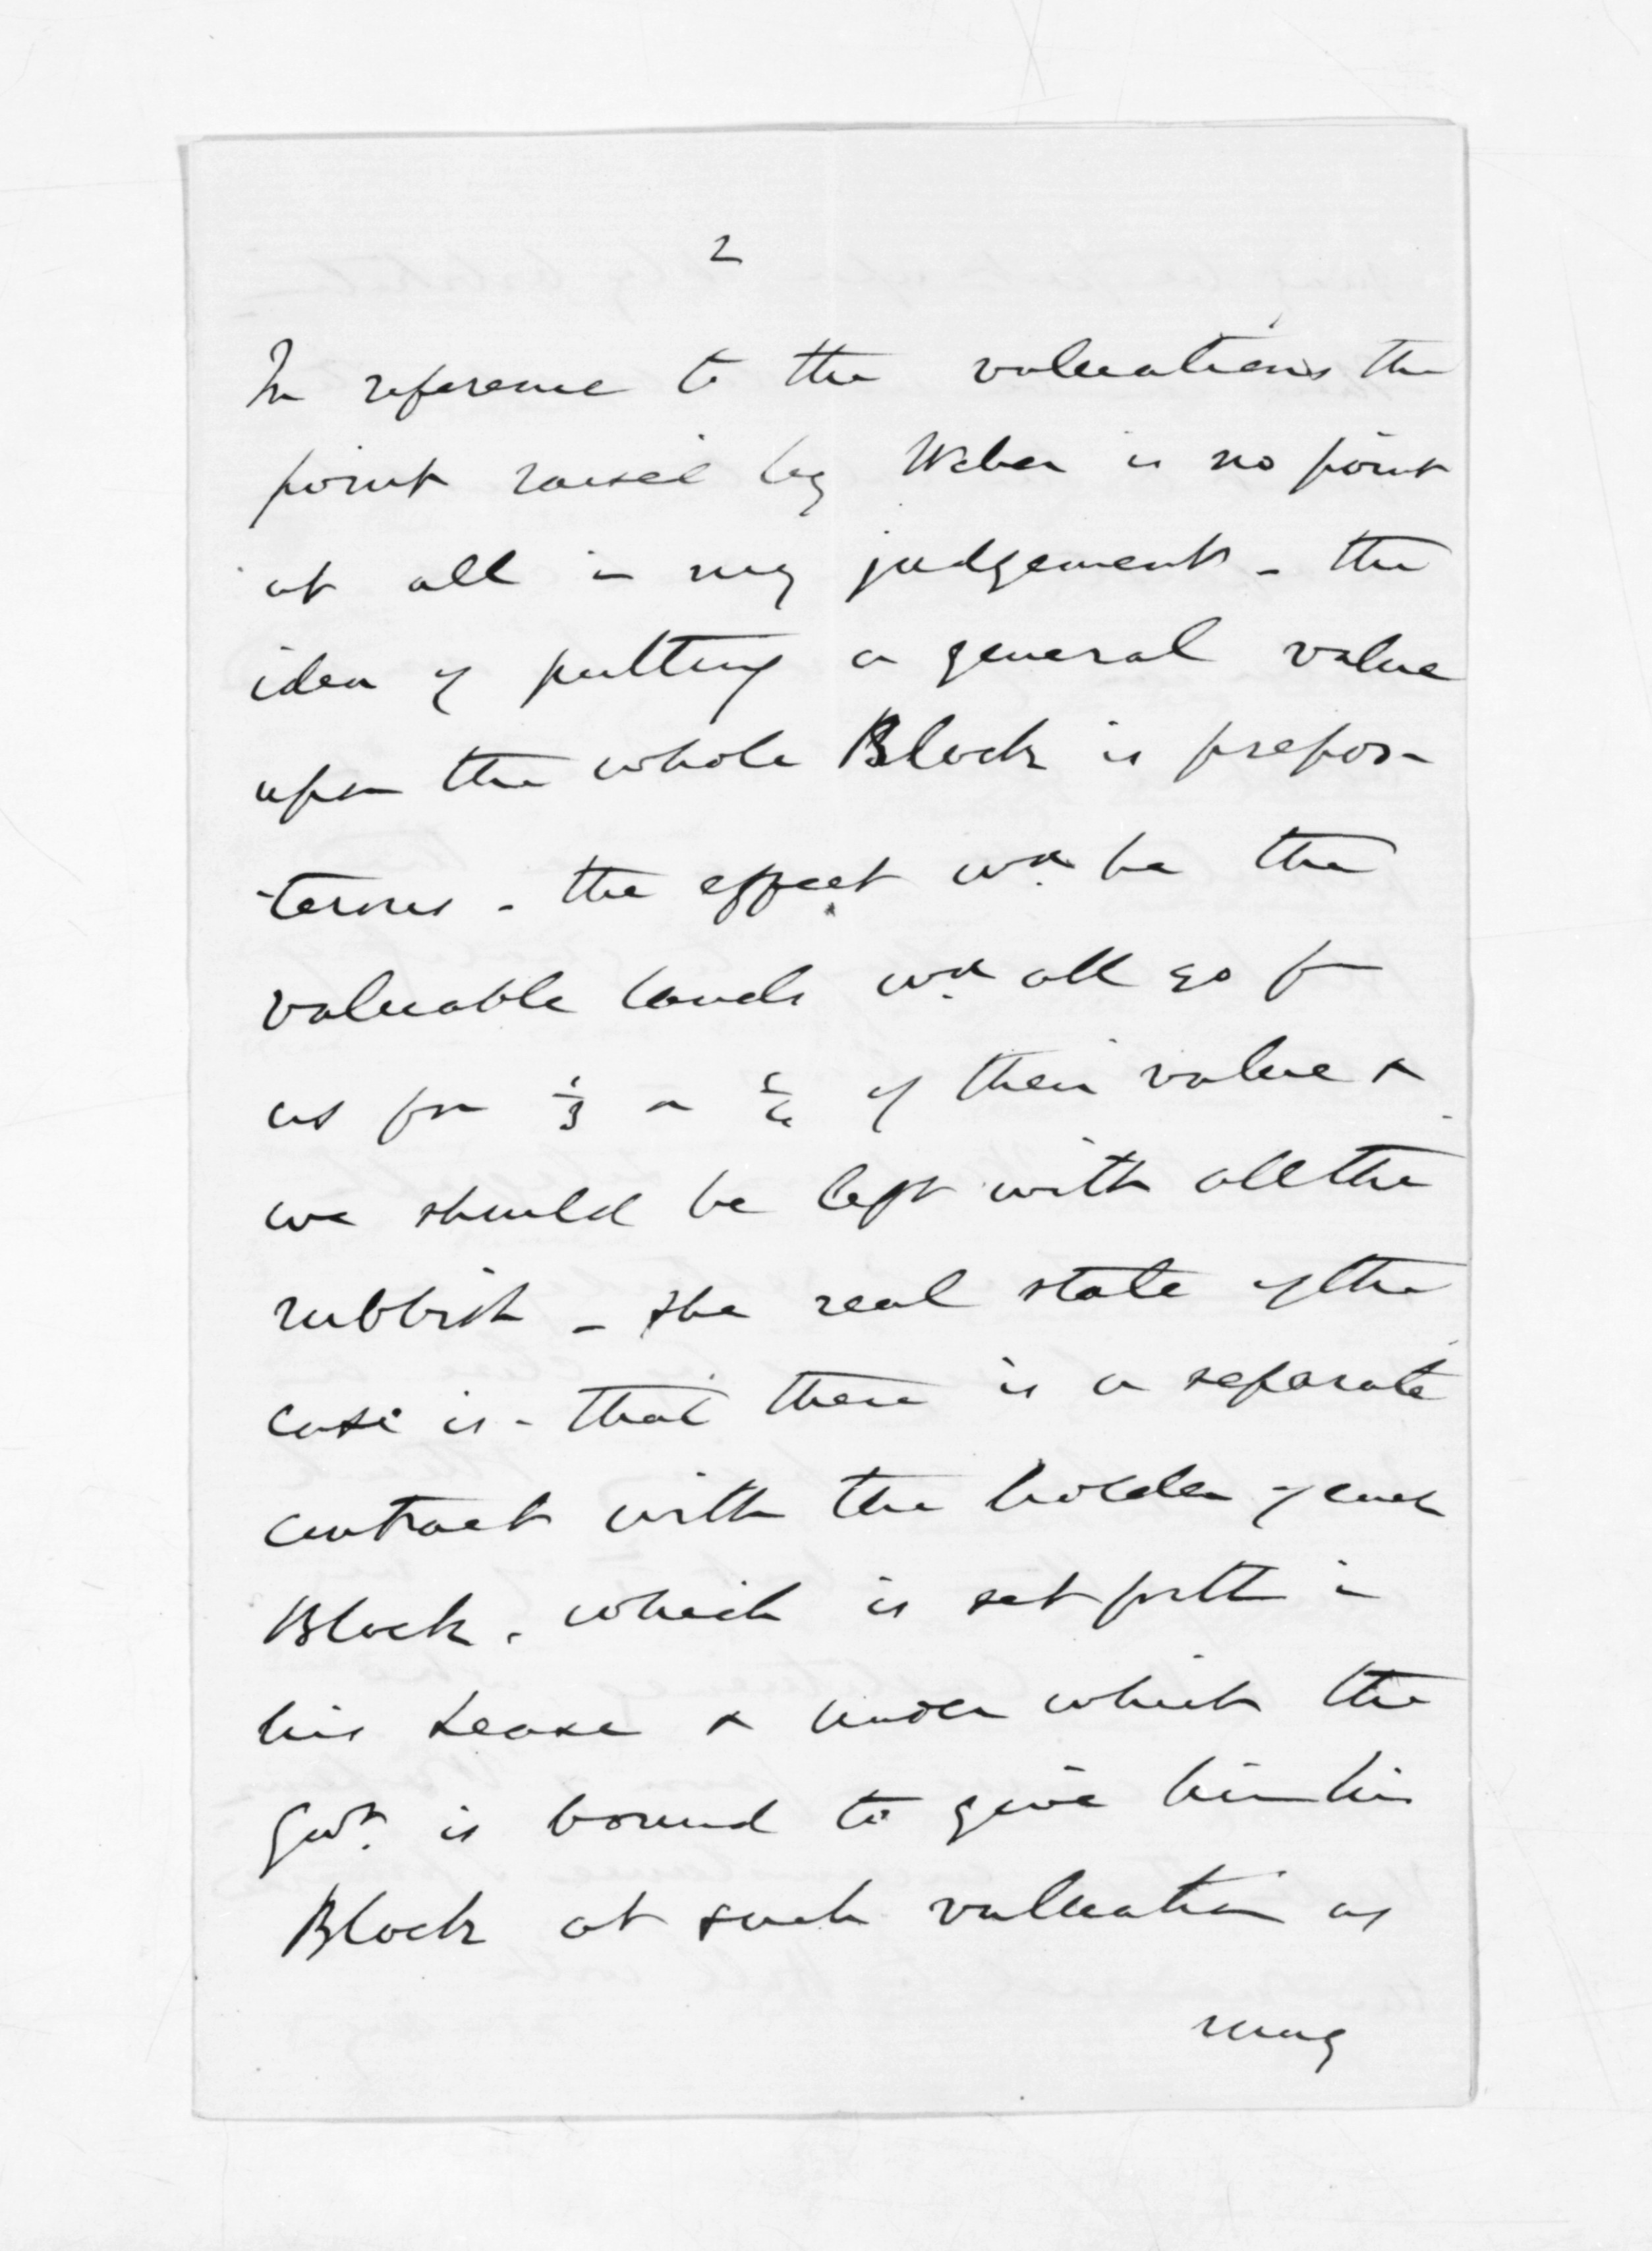 2
In reference to the valuations the
point raised by Weber is no point
at all in my judgement - the
idea of putting a general value
upon the whole Block is prepos-
terous - the effect wd. be the
valuable lands wd. all go fm
us for 1/3 or 1/4 of their value &
we should be left with all the
rubbish - the real state of the
case is - that there is a separate
contract with the holder of each
Block, which is set forth in
his Lease & under which the
Govt. is bound to give him his
Block at such valuation as
may